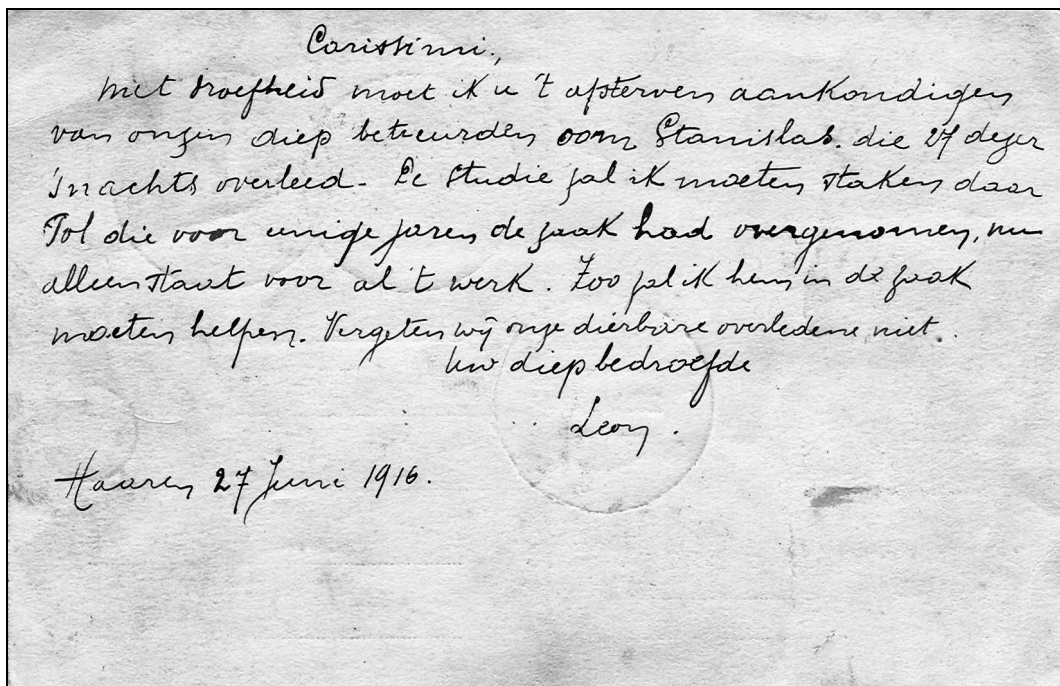 Carissimi,
Met droefheid moet ik u 't afsterven aankondigen
van onzen diep betreurden oom Stanislas. die 27 dezer
's nachts overleed - De studie zal ik moeten staken daar
Pol die voor eenige jaren de zaak had overgenomen, nu
alleen staat voor al 't werk. Zoo zal ik hem in de zaak
moeten helpen. Vergeten wij onze dierbare overledene niet.
Uw diepbedroefde
Leon.
Haaren 27 Juni 1916.